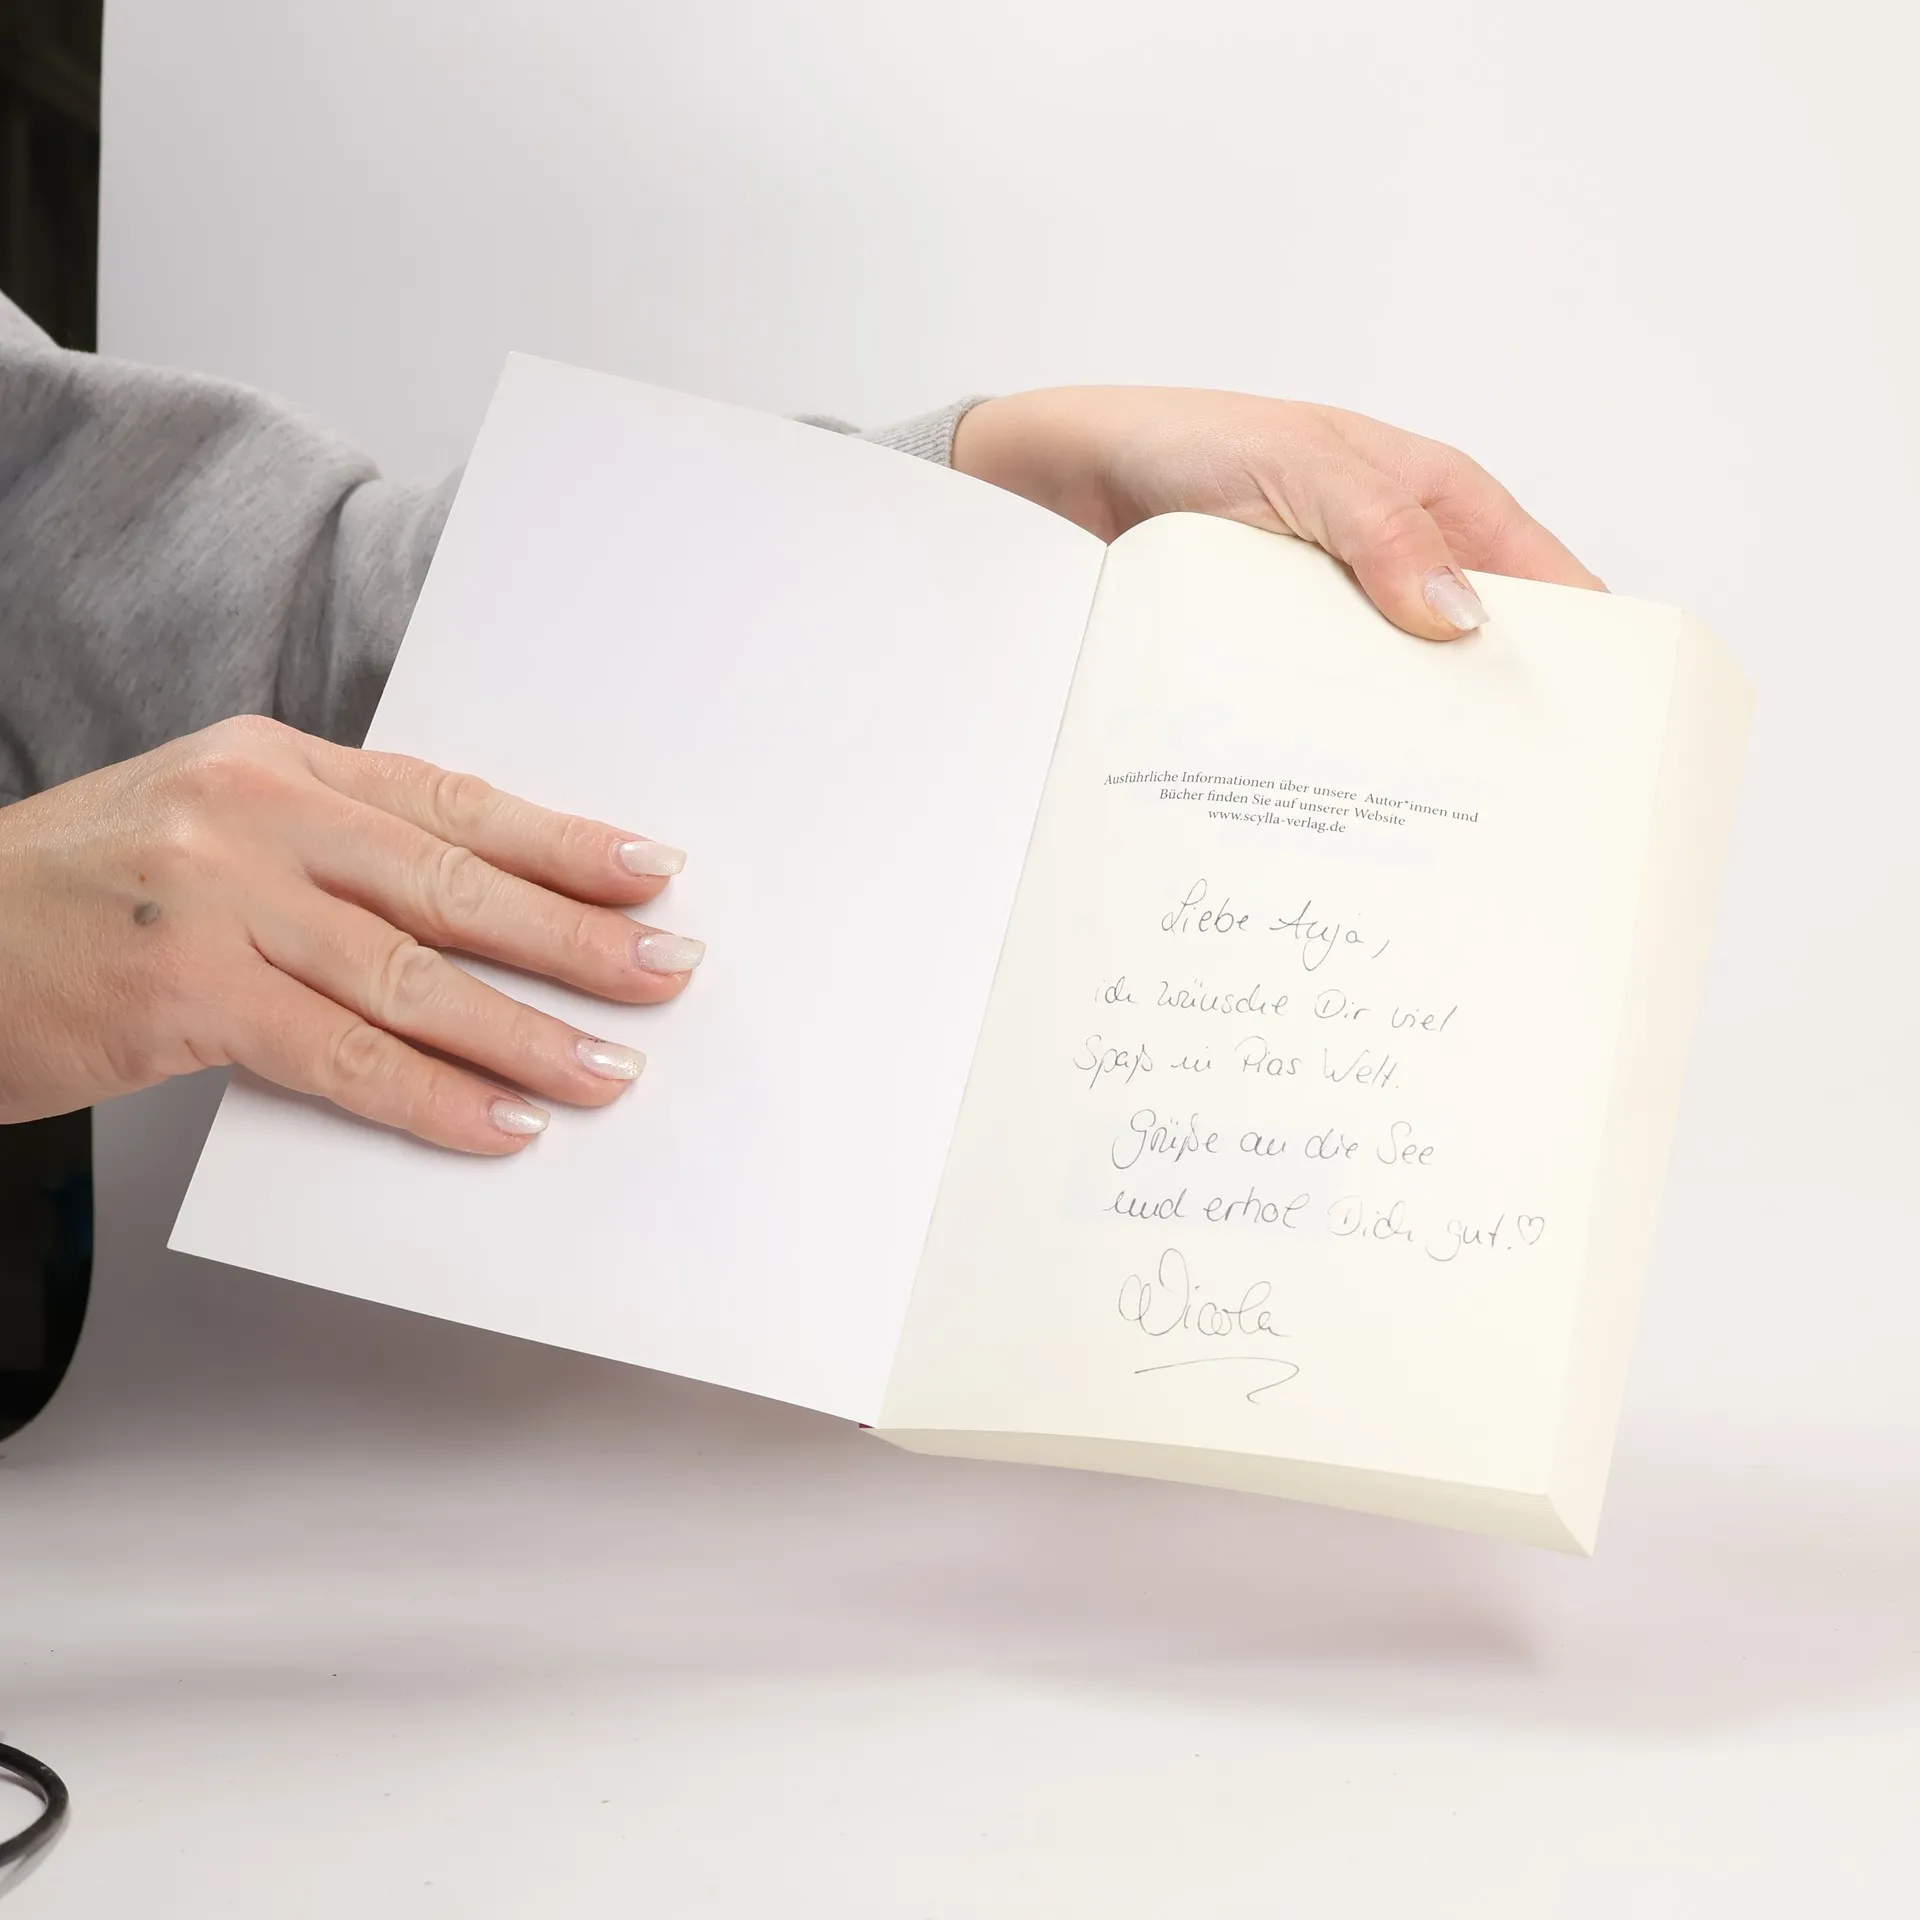 Ausführliche Informationen über unsere Autor*innen und
Bücher finden Sie auf unserer Website
www.scylla-verlag.de
Liebe Anja,
ich wünsche Dir viel
Spaß in Pias Welt.
Grüße an die See
und erhol Dich gut.♡
Nicola